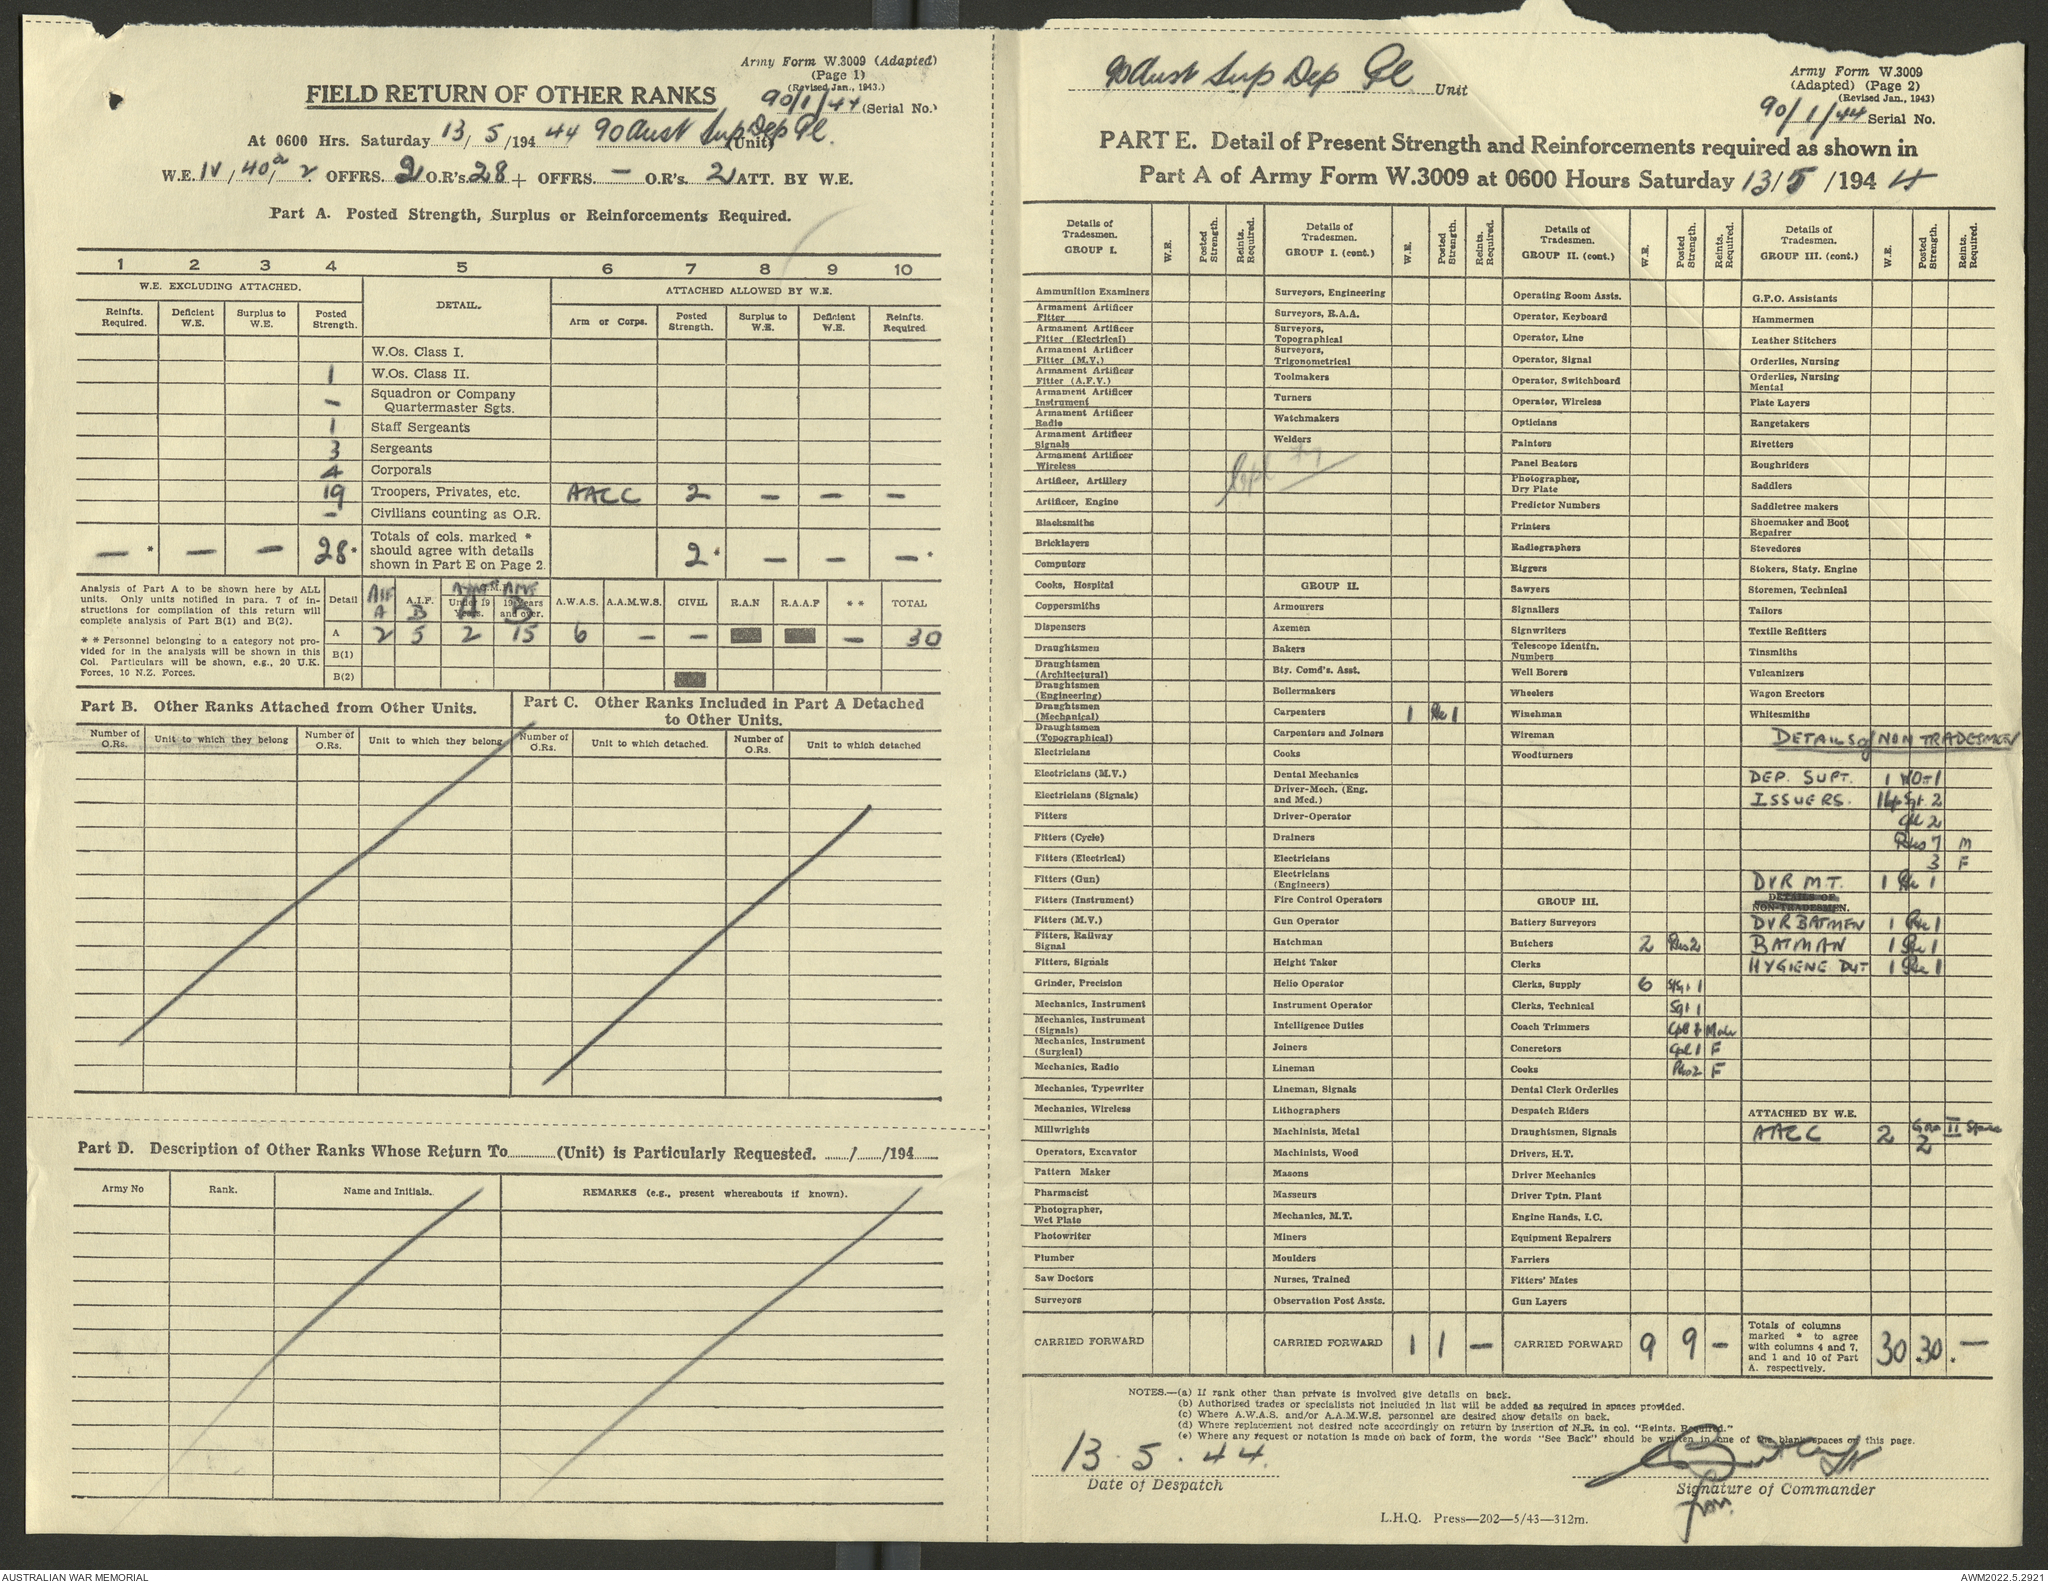 Army Form W.3009 (Adapted)
(Page 1)
(Revised Jan., 1943.)
FIELD RETURN OF OTHER RANKS
90/1/44 (Serial No.)
At 0600 Hrs. Saturday 13/5/194 44 90 Aust Sup Dep Pl. (Unit)
W.E. IV/40a/2 OFFRS. 2 O.R's. 28 + OFFRS. — O.R's. 2 ATT. BY W.E.
Part A. Posted Strength, Surplus or Reinforcements Required.
1 2 3 4 5 6 7 8 9 10
W.E. EXCLUDING ATTACHED. DETAIL. ATTACHED ALLOWED BY W.E.
Reinfts. Required. Deficient W.E. Surplus to W.E. Posted Strength. Arm or Corps. Posted Strength. Surplus to W.E. Deficient W.E. Reinfts. Required
W.Os. Class I.
1 W.Os. Class II.
– Squadron or Company Quartermaster Sgts.
1 Staff Sergeants
3 Sergeants
4 Corporals
19 Troopers, Privates, etc. AACC 2 – – –
– Civilians counting as O.R.
— * — — 28 * Totals of cols. marked * should agree with details shown in Part E on Page 2. 2 * — — — *
Analysis of Part A to be shown here by ALL units. Only units notified in para. 7 of instructions for compilation of this return will complete analysis of Part B(1) and B(2).
** Personnel belonging to a category not provided for in the analysis will be shown in this Col. Particulars will be shown, e.g., 20 U.K. Forces, 10 N.Z. Forces.
Detail AIF A A.I.F. B Under 19 Years. A AMF 19 Years and over. B A.W.A.S. A.A.M.W.S. CIVIL R.A.N R.A.A.F ** TOTAL
A 2 5 2 15 6 – – – 30
B(1)
B(2)
Part B. Other Ranks Attached from Other Units.
Number of O.Rs. Unit to which they belong Number of O.Rs. Unit to which they belong
Part C. Other Ranks Included in Part A Detached to Other Units.
Number of O.Rs. Unit to which detached. Number of O.Rs. Unit to which detached
Part D. Description of Other Ranks Whose Return To (Unit) is Particularly Requested. / /194
Army No Rank. Name and Initials. REMARKS (e.g., present whereabouts if known).
90 Aust Sup Dep Pl Unit
Army Form W.3009
(Adapted) (Page 2)
(Revised Jan., 1943)
90/1/44 Serial No.
PART E. Detail of Present Strength and Reinforcements required as shown in
Part A of Army Form W.3009 at 0600 Hours Saturday 13/5/194 4
Details of Tradesmen. GROUP I. W.E. Posted Strength. Reints. Required.
Ammunition Examiners
Armament Artificer Fitter
Armament Artificer Fitter (Electrical)
Armament Artificer Fitter (M.V.)
Armament Artificer Fitter (A.F.V.)
Armament Artificer Instrument
Armament Artificer Radio
Armament Artificer Signals
Armament Artificer Wireless
Artificer, Artillery
Artificer, Engine
Blacksmiths
Bricklayers
Computors
Cooks, Hospital
Coppersmiths
Dispensers
Draughtsmen
Draughtsmen (Architectural)
Draughtsmen (Engineering)
Draughtsmen (Mechanical)
Draughtsmen (Topographical)
Electricians
Electricians (M.V.)
Electricians (Signals)
Fitters
Fitters (Cycle)
Fitters (Electrical)
Fitters (Gun)
Fitters (Instrument)
Fitters (M.V.)
Fitters, Railway Signal
Fitters, Signals
Grinder, Precision
Mechanics, Instrument
Mechanics, Instrument (Signals)
Mechanics, Instrument (Surgical)
Mechanics, Radio
Mechanics, Typewriter
Mechanics, Wireless
Millwrights
Operators, Excavator
Pattern Maker
Pharmacist
Photographer, Wet Plate
Photowriter
Plumber
Saw Doctors
Surveyors
CARRIED FORWARD
Details of Tradesmen. GROUP I. (cont.) W.E. Posted Strength. Reints. Required.
Surveyors, Engineering
Surveyors, R.A.A.
Surveyors, Topographical
Surveyors, Trigonometrical
Toolmakers
Turners
Watchmakers
Welders
GROUP II.
Armourers
Axemen
Bakers
Bty. Comd's. Asst.
Boilermakers
Carpenters 1 Pte 1
Carpenters and Joiners
Cooks
Dental Mechanics
Driver-Mech. (Eng. and Med.)
Driver-Operator
Drainers
Electricians
Electricians (Engineers)
Fire Control Operators
Gun Operator
Hatchman
Height Taker
Helio Operator
Instrument Operator
Intelligence Duties
Joiners
Lineman
Lineman, Signals
Lithographers
Machinists, Metal
Machinists, Wood
Masons
Masseurs
Mechanics, M.T.
Miners
Moulders
Nurses, Trained
Observation Post Assts.
CARRIED FORWARD 1 1 —
Details of Tradesmen. GROUP II. (cont.) W.E. Posted Strength. Reints. Required.
Operating Room Assts.
Operator, Keyboard
Operator, Line
Operator, Signal
Operator, Switchboard
Operator, Wireless
Opticians
Painters
Panel Beaters
Photographer, Dry Plate
Predictor Numbers
Printers
Radiographers
Riggers
Sawyers
Signallers
Signwriters
Telescope Identfn. Numbers
Well Borers
Wheelers
Winchman
Wireman
Woodturners
GROUP III.
Battery Surveyors
Butchers 2 Ptes 2
Clerks
Clerks, Supply 6 S/Sgt 1
Clerks, Technical Sgt 1
Coach Trimmers Cpl 1 Male
Concretors Cpl 1 F
Cooks Ptes 2 F
Dental Clerk Orderlies
Despatch Riders
Draughtsmen, Signals
Drivers, H.T.
Driver Mechanics
Driver Tptn. Plant
Engine Hands, I.C.
Equipment Repairers
Farriers
Fitters' Mates
Gun Layers
CARRIED FORWARD 9 9 —
Details of Tradesmen. GROUP III. (cont.) W.E. Posted Strength. Reints. Required.
G.P.O. Assistants
Hammermen
Leather Stitchers
Orderlies, Nursing
Orderlies, Nursing Mental
Plate Layers
Rangetakers
Rivetters
Roughriders
Saddlers
Saddletree makers
Shoemaker and Boot Repairer
Stevedores
Stokers, Staty. Engine
Storemen, Technical
Tailors
Textile Refitters
Tinsmiths
Vulcanizers
Wagon Erectors
Whitesmiths
DETAILS of NON TRADESMEN
DEP. SUPT. 1 WO-1
ISSUERS. 14 Sgt 2
Cpl 2
Ptes 7 M
3 F
DVR M.T. 1 Pte 1
DETAILS OF NON-TRADESMEN.
DVR BATMEN 1 Pte 1
BATMAN 1 Pte 1
HYGIENE DUT 1 Pte 1
ATTACHED BY W.E.
AACC 2 Grp II 2
Totals of columns marked * to agree with columns 4 and 7, and 1 and 10 of Part A. respectively. 30 30 —
NOTES.—(a) If rank other than private is involved give details on back.
(b) Authorised trades or specialists not included in list will be added as required in spaces provided.
(c) Where A.W.A.S. and/or A.A.M.W.S. personnel are desired show details on back.
(d) Where replacement not desired note accordingly on return by insertion of N.R. in col. "Reints. Required."
(e) Where any request or notation is made on back of form, the words "See Back" should be written in one of the blank spaces on this page.
13.5.44.
Date of Despatch
Signature of Commander
for
L.H.Q. Press—202—5/43—312m.
AUSTRALIAN WAR MEMORIAL
AWM2022.5.2921